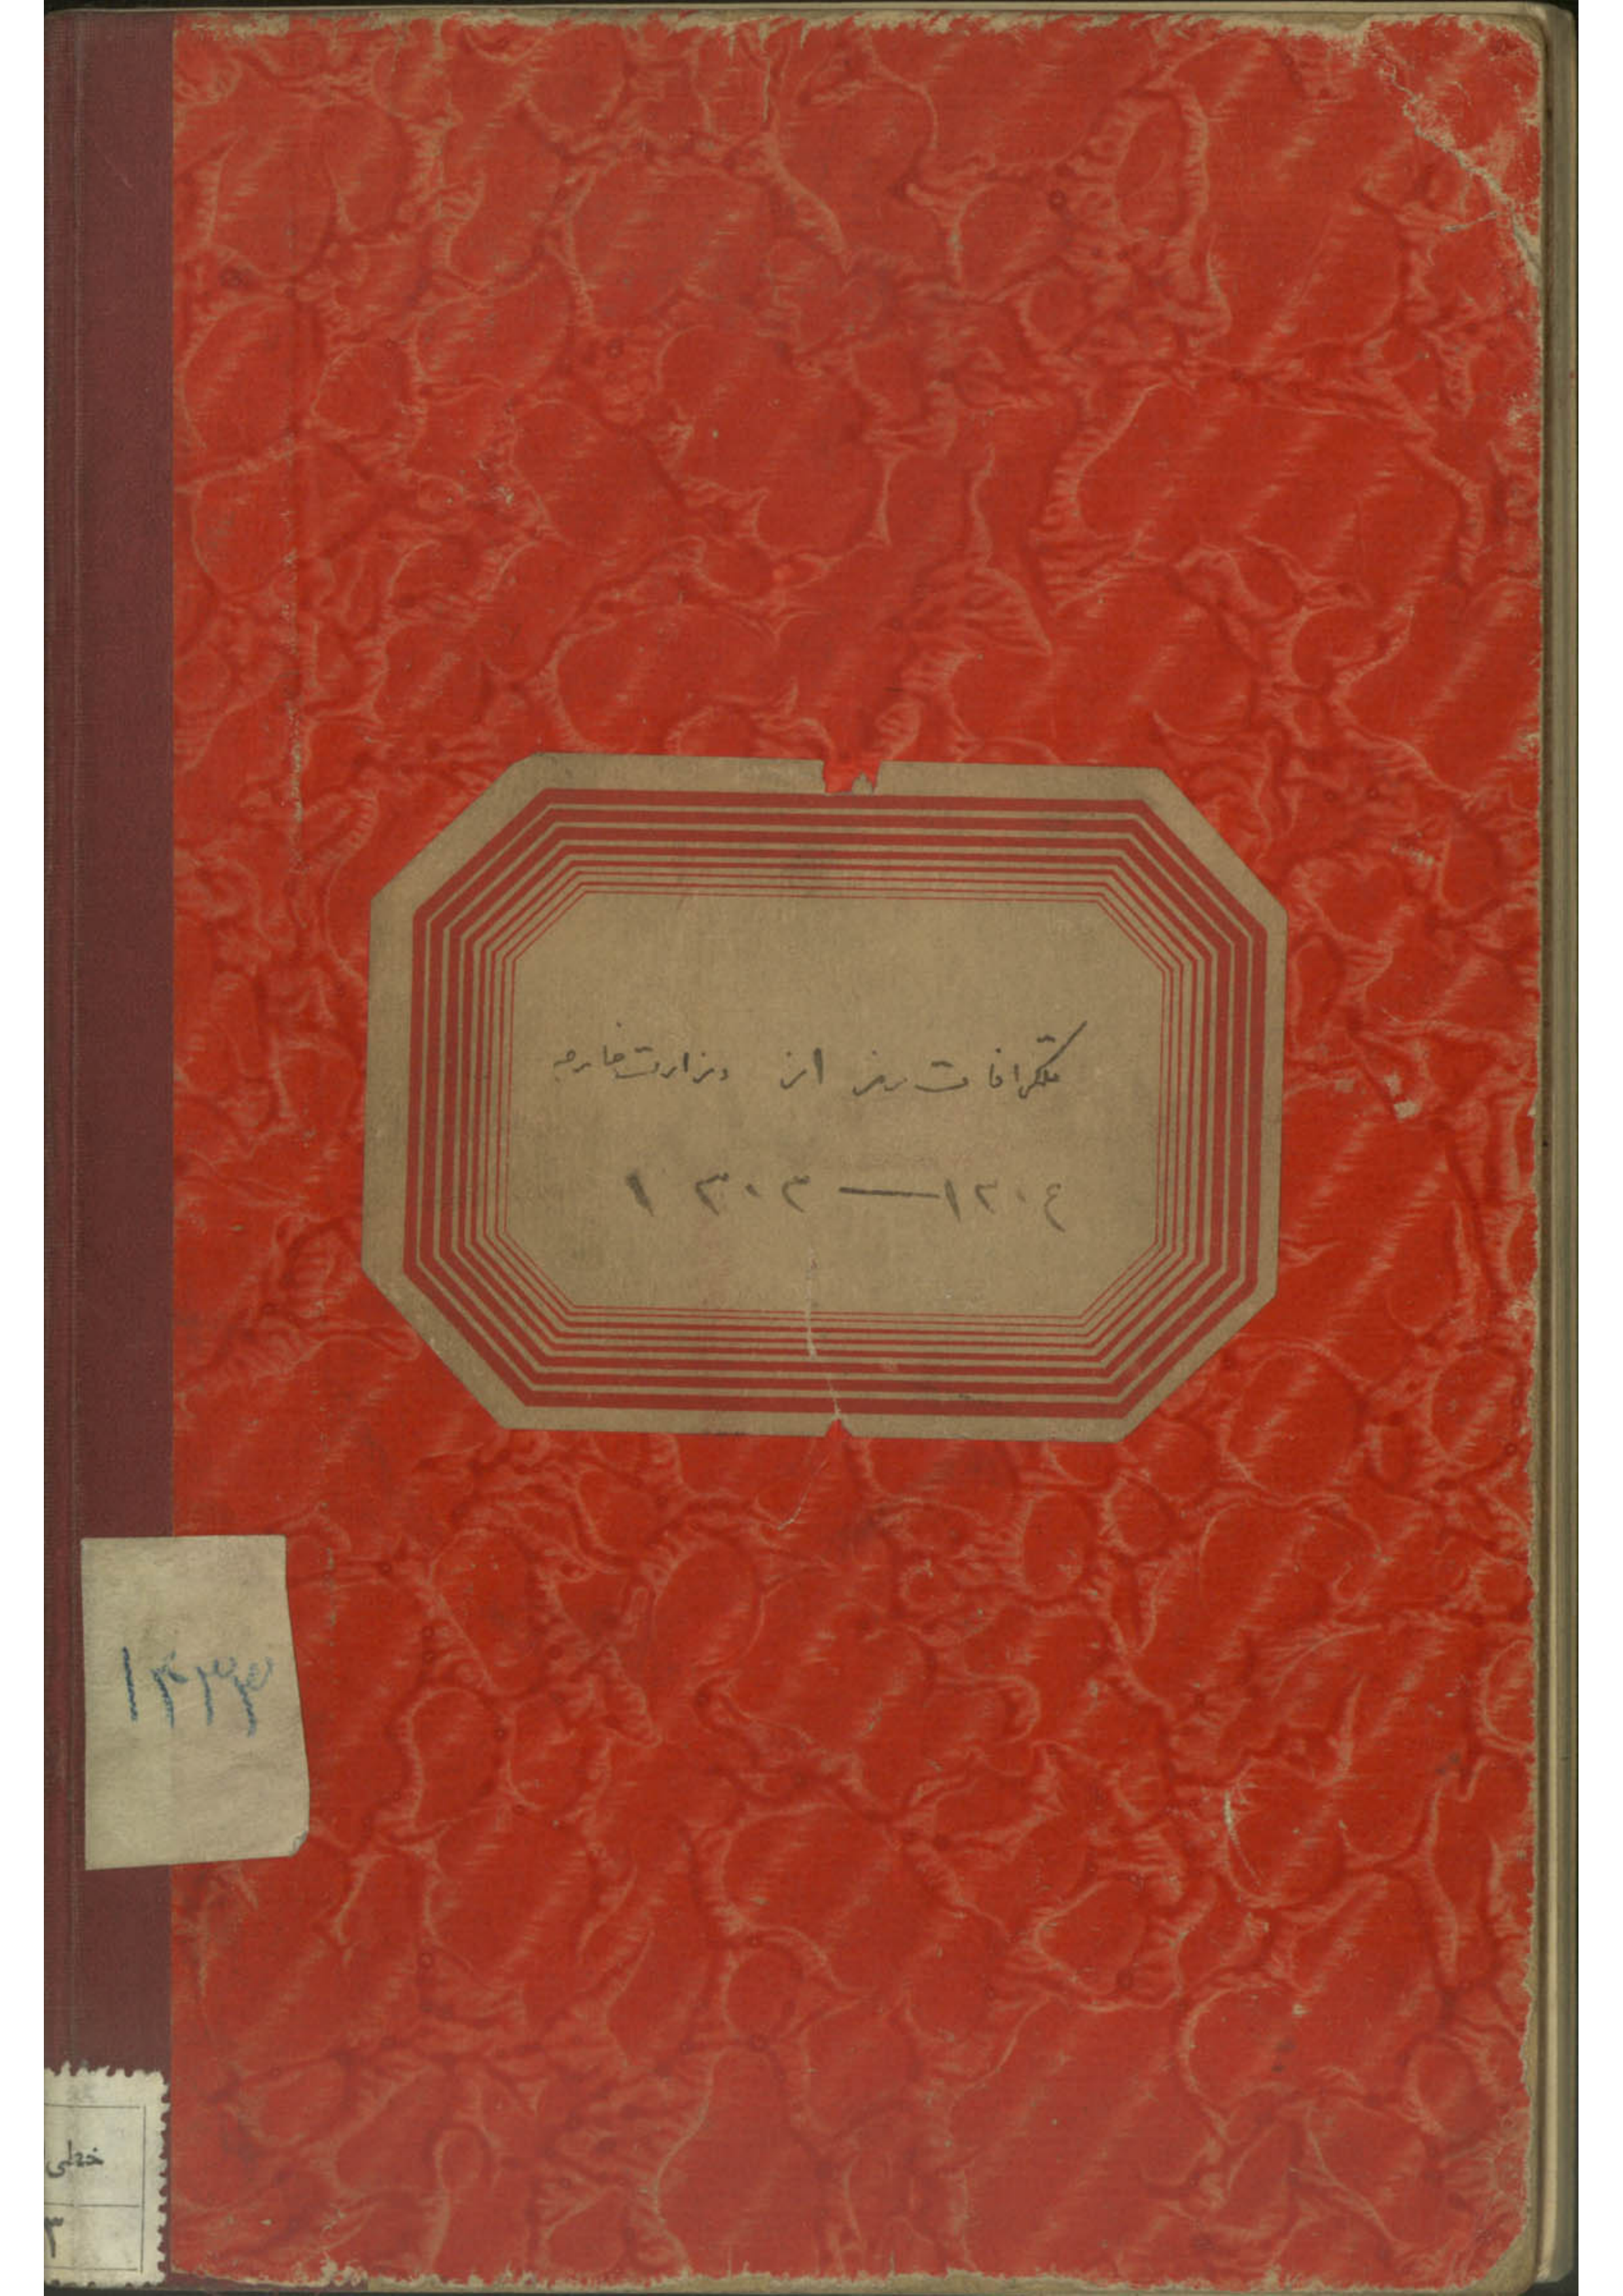 تلگرافات رمز از وزارت خارجه
۱۳۰۳ — ۱۳۰٤
۱۴۳۳
خطی
۳